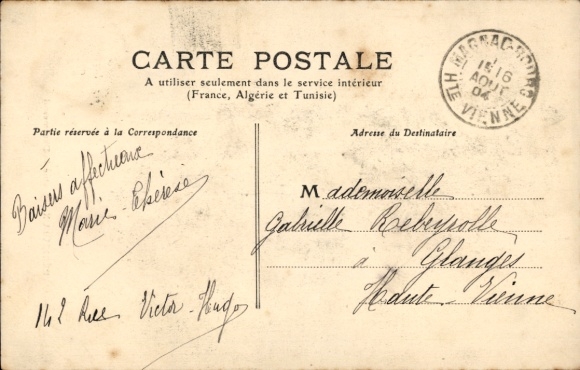 CARTE POSTALE
A utiliser seulement dans le service intérieur
(France, Algérie et Tunisie)
MAGNAC-BOURG
15 16
AOUT
04
HTE VIENNE
Partie réservée à la Correspondance
Adresse du Destinataire
Baisers affectueux
Marie-Thérèse
142 Rue Victor-Hugo
Mademoiselle
Gabrielle Rebeyrolle
à Glanges
Haute-Vienne